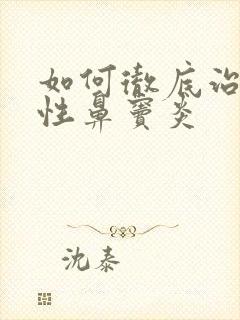 如何徹底治
性鼻竇炎
沈泰